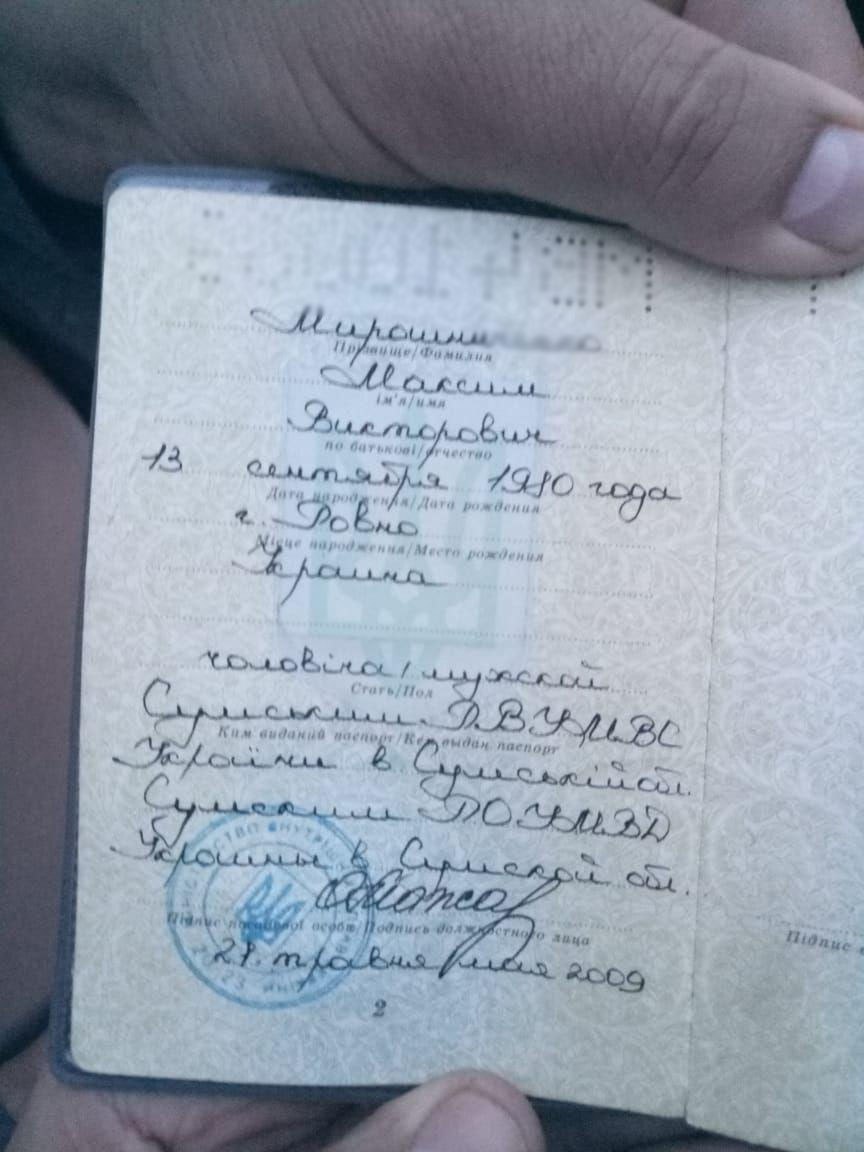 Мирошни
Прізвище/Фамилия
Максим
ім'я/имя
Викторович
по батькові/отчество
13 сентября 1980 года
Дата народження/Дата рождения
г. Ровно
Місце народження/Место рождения
Украина
чоловіча/мужской
Стать/Пол
Сумським РВ УМВС
Ким виданий паспорт/Кем выдан паспорт
України в Сумській обл.
Сумским РО УМВД
Украины в Сумской обл.
Підпис посадової особи/Подпись должностного лица
28. травня/мая 2009
2
Підпис